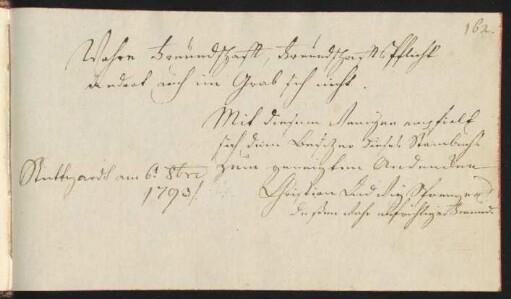 162.
Wahre Freundschaft, Freundschafts Pflicht
ändert auch im Grab sich nicht.
Mit diesem Wenigen empfielt
sich dem Besitzer dieses Stambuchs
zum geneigten Andenken
Stuttgardt am 6. 8bre
1793.
Christian Ludwig
dessen wahr aufrichtiger Freund.